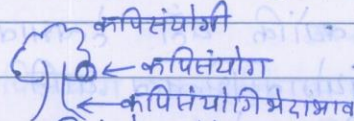 कपिसंयोगी
← कपिसंयोग
← कपिसंयोगिभेदाभाव